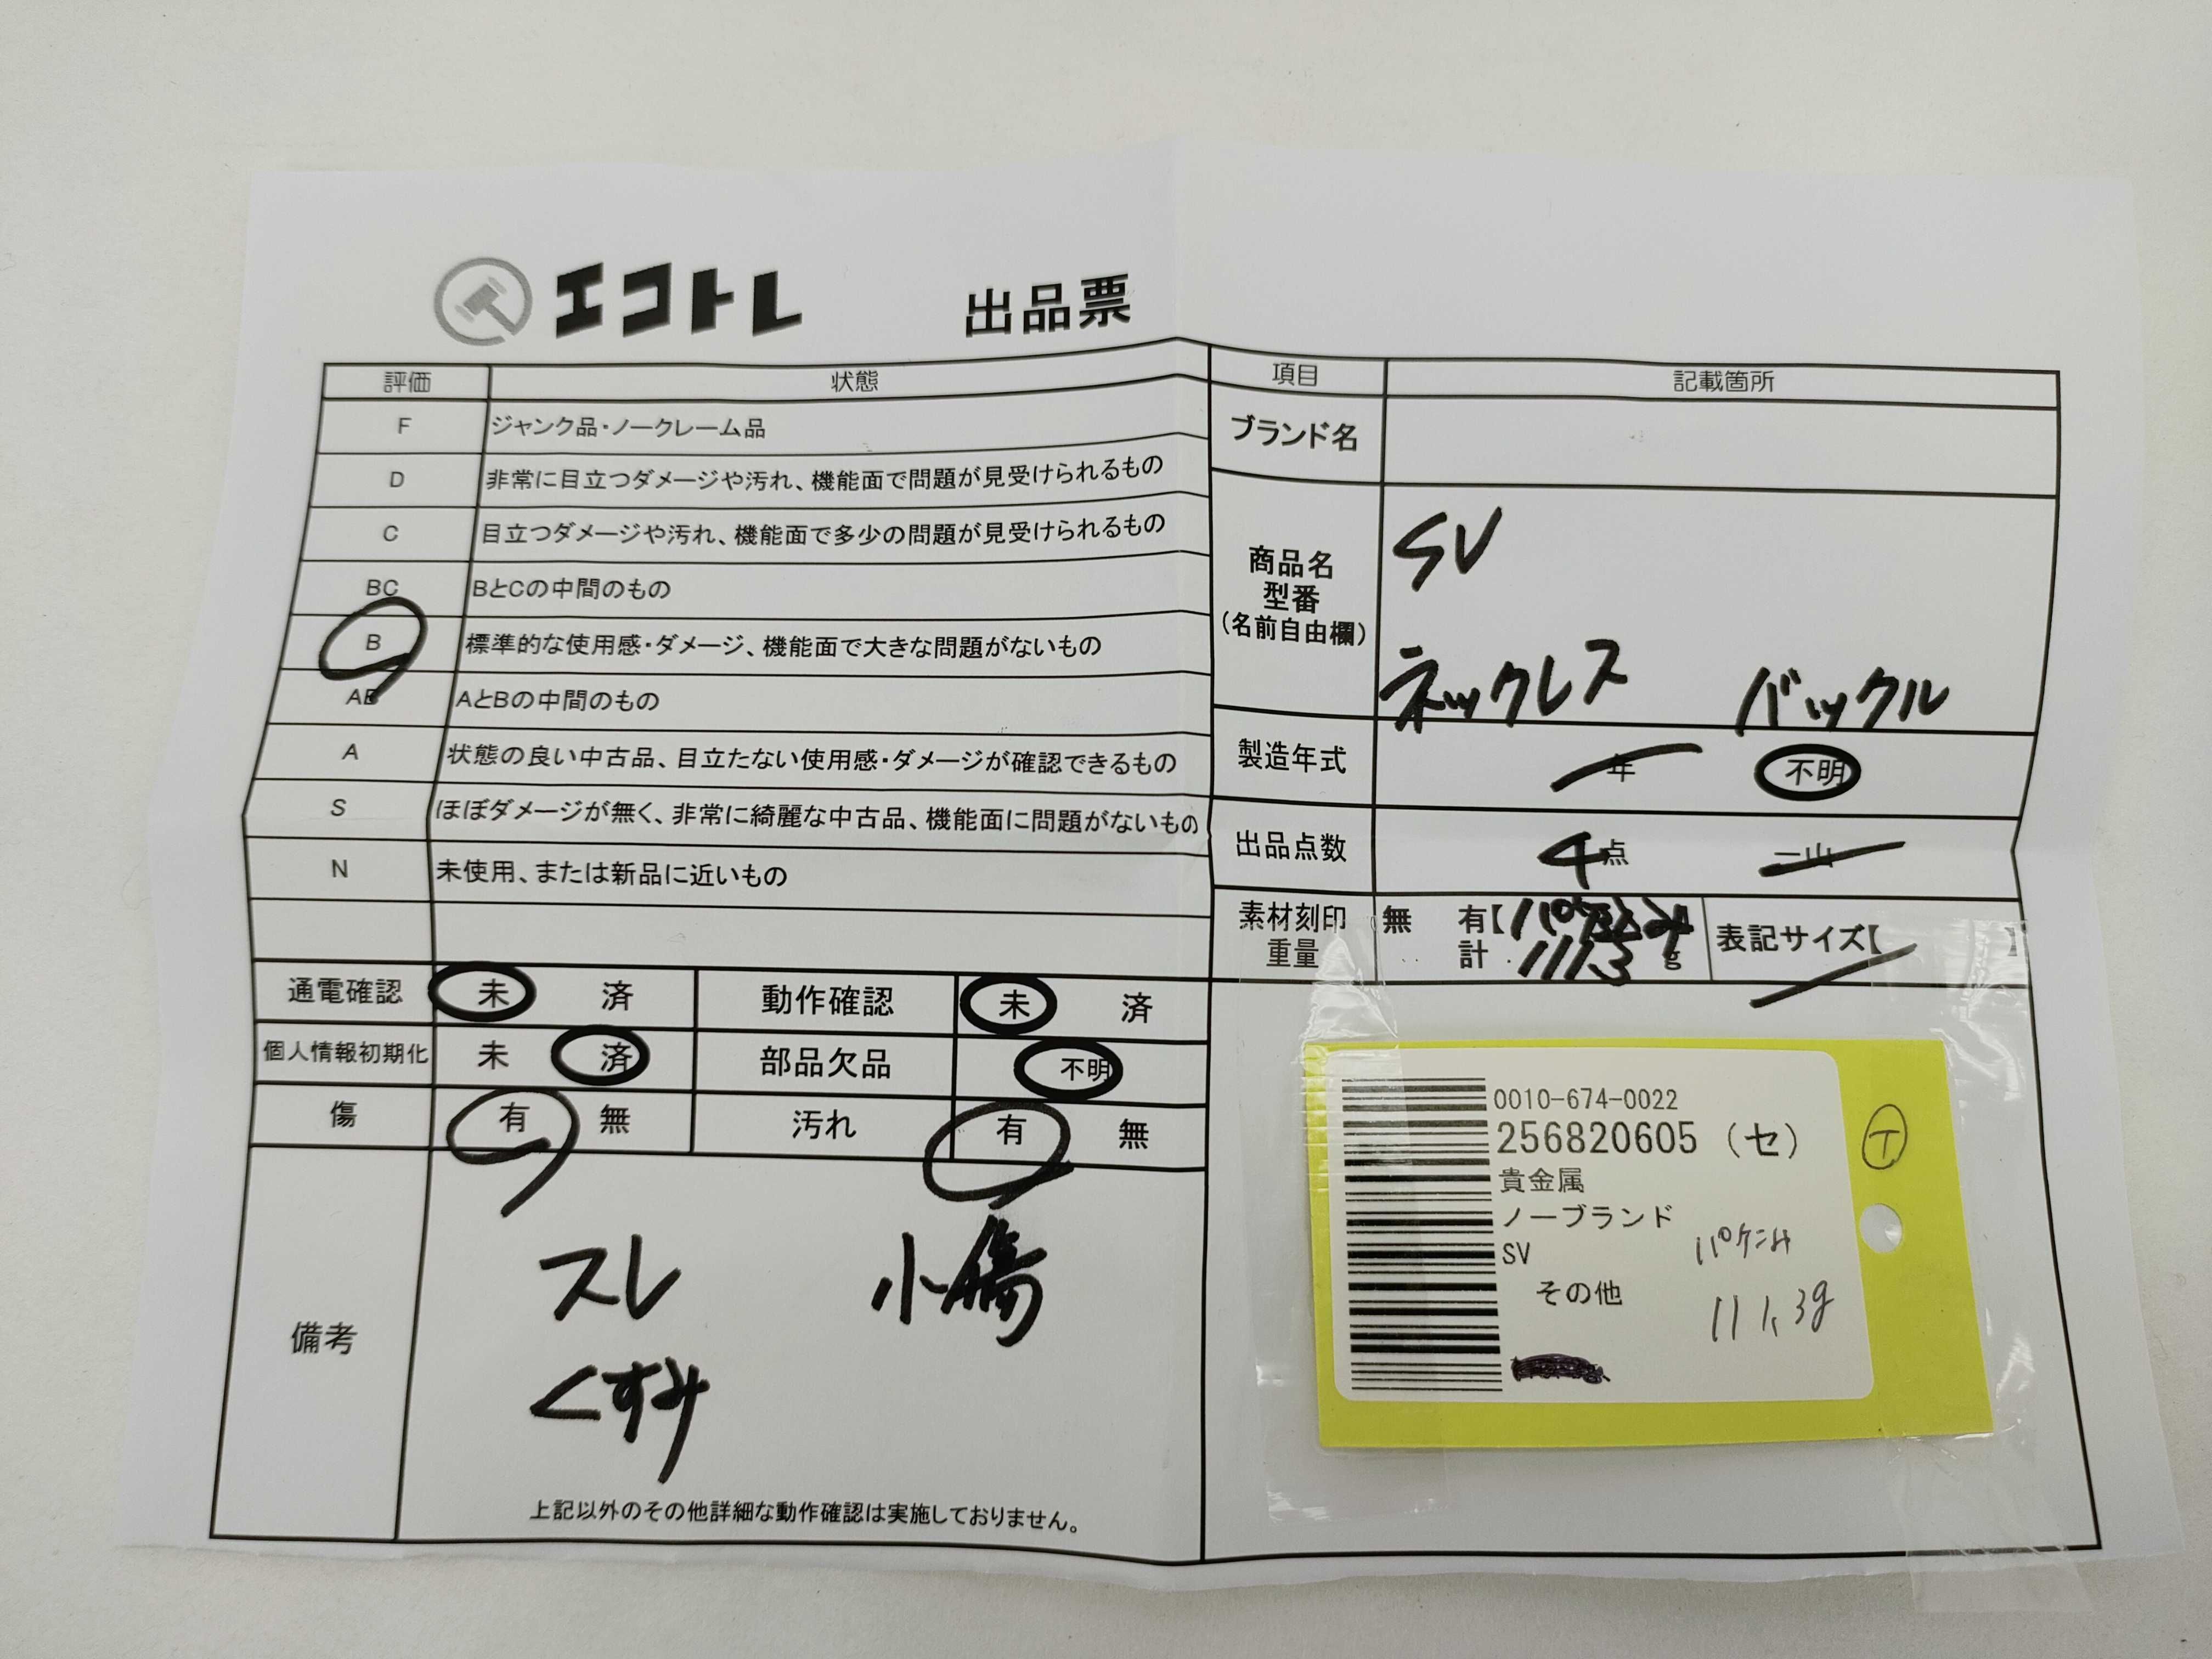 エコトレ 出品票
評価 状態
F ジャンク品・ノークレーム品
D 非常に目立つダメージや汚れ、機能面で問題が見受けられるもの
C 目立つダメージや汚れ、機能面で多少の問題が見受けられるもの
BC BとCの中間のもの
B 標準的な使用感・ダメージ、機能面で大きな問題がないもの
AB AとBの中間のもの
A 状態の良い中古品、目立たない使用感・ダメージが確認できるもの
S ほぼダメージが無く、非常に綺麗な中古品、機能面に問題がないもの
N 未使用、または新品に近いもの
通電確認 未 済 動作確認 未 済
個人情報初期化 未 済 部品欠品 不明
傷 有 無 汚れ 有 無
備考
スレ 小傷
くすみ
上記以外のその他詳細な動作確認は実施しておりません。
項目 記載箇所
ブランド名
商品名
型番
(名前自由欄)
SV
ネックレス バックル
製造年式 年 不明
出品点数 4点 一山
素材刻印 無 有【
重量 計 111.3 g
表記サイズ【 】
0010-674-0022
256820605 (セ)
貴金属
ノーブランド
SV
その他
パケ込み
111.3g
T